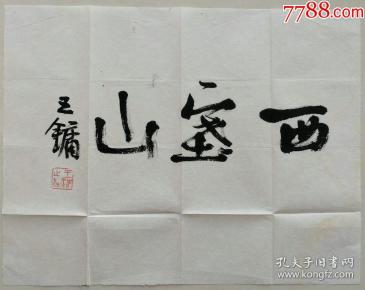 7788.com
西塞山
王镛
孔夫子旧书网
www.kongfz.com